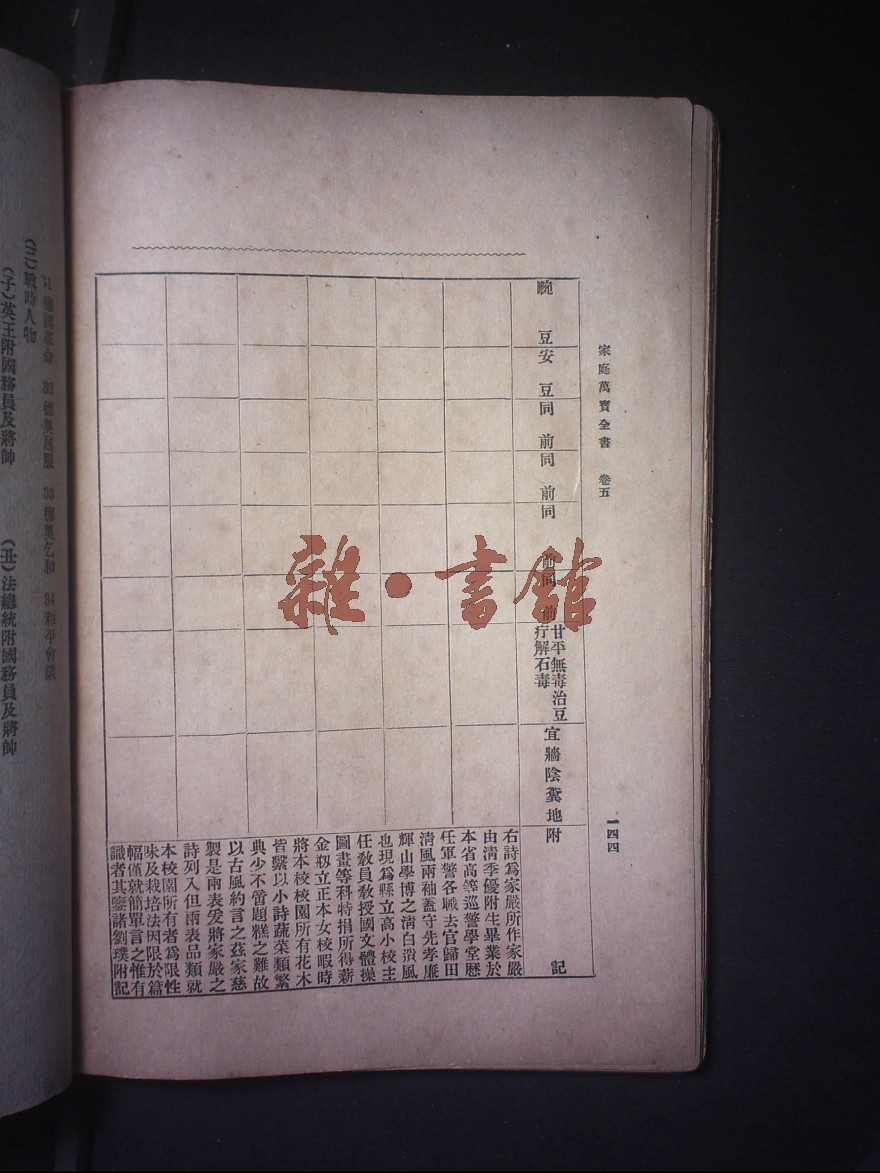 家庭萬寶全書　卷五
一四四
豌豆
安豆
同前
同前
同前
同前
甘平無毒治豆
疔解石毒
宜牆陰糞地
附記
右詩爲家嚴所作家嚴
由淸季優附生畢業於
本省高等巡警學堂歷
任軍警各職去官歸田
淸風兩袖蓋守先孝廉
輝山學博之淸白遺風
也現爲縣立高小校主
任教員教授國文體操
圖畫等科特捐所得薪
金剏立正本女校暇時
將本校校園所有花木
皆繫以小詩蔬菜類繁
典少不啻題糕之難故
以古風約言之茲家慈
製是兩表爰將家嚴之
詩列入但兩表品類就
本校園所有者爲限性
味及栽培法因限於篇
幅僅就簡單言之惟有
識者其鑒諸劉璞附記
雜·書館
31 德國革命　32 德奧屈服　33 德奧乞和　34 和平會議
(三)戰時人物
(子)英王附國務員及將帥　(丑)法總統附國務員及將帥